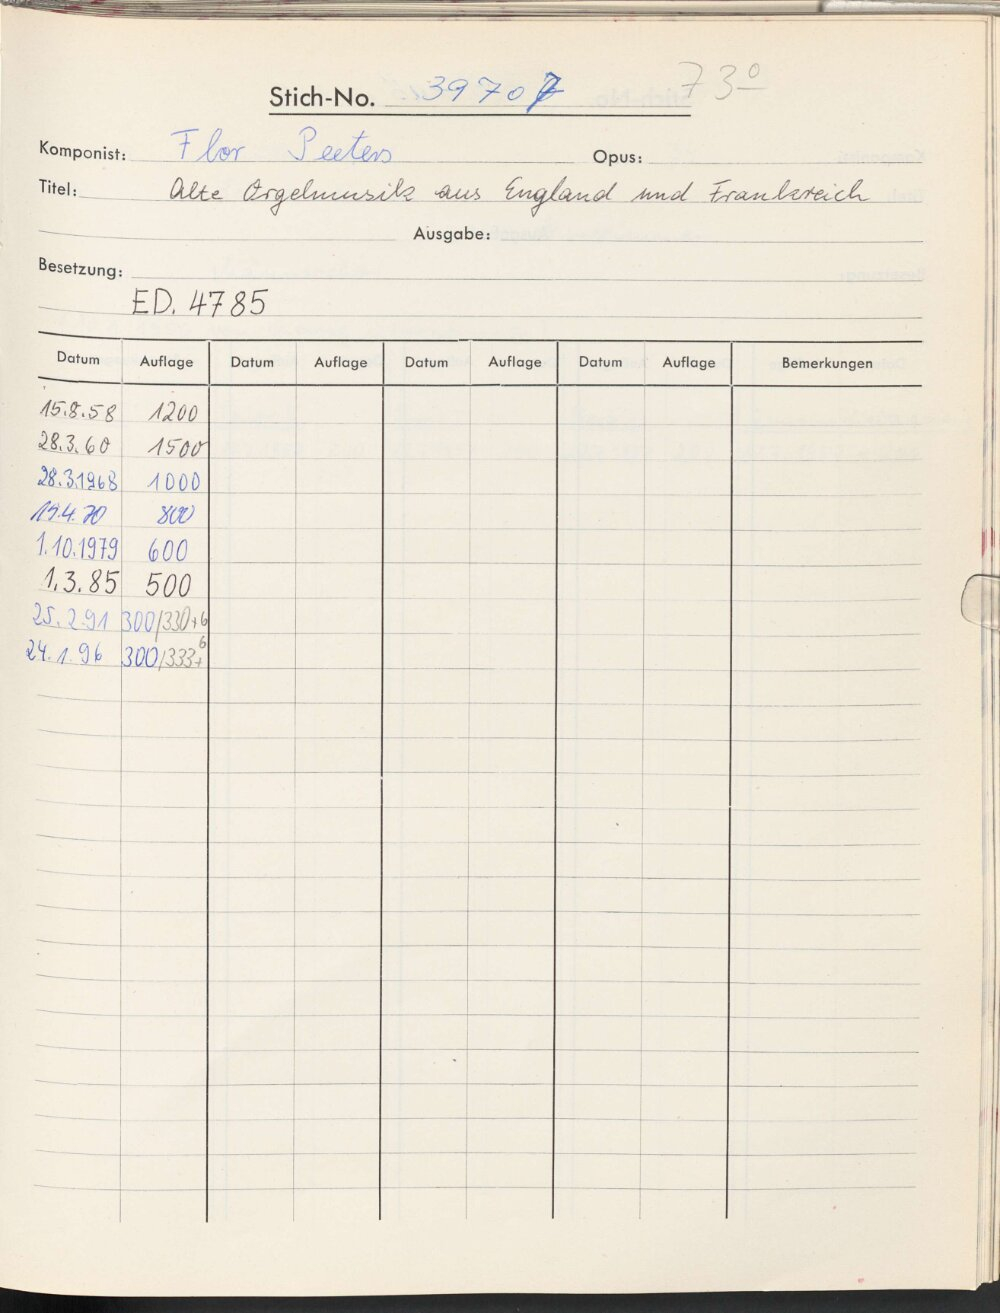 Stich-No. 39707 73º
Komponist: Flor Peeters Opus:
Titel: Alte Orgelmusik aus England und Frankreich
Ausgabe:
Besetzung:
ED. 4785
Datum Auflage Datum Auflage Datum Auflage Datum Auflage Bemerkungen
15.8.58 1200
28.3.60 1500
28.3.1968 1000
19.4.70 800
1.10.1979 600
1.3.85 500
25.2.91 300/330+6
24.1.96 300/333+6